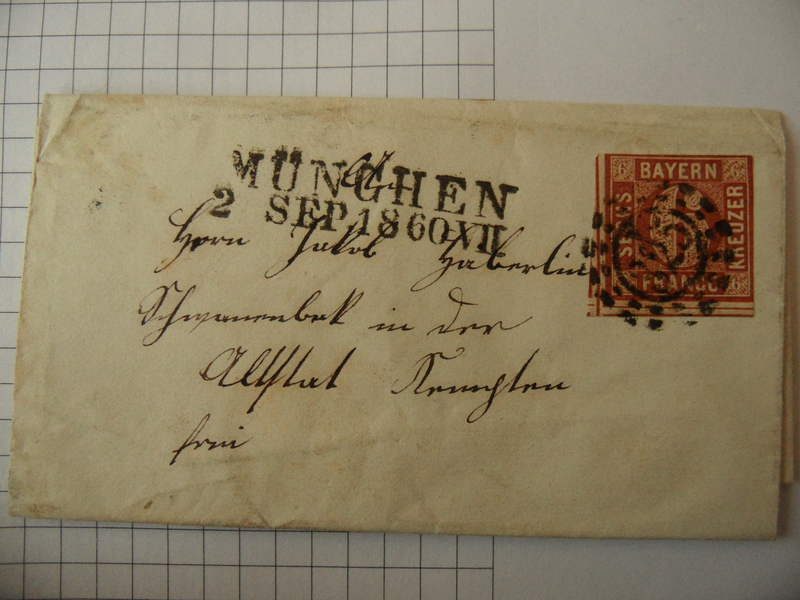 MÜNCHEN
2 SEP. 1860 XII
6 BAYERN 6
SECHS
KREUZER
FRANCO
6
Herrn Jakob Haberlin
Schwanenbek in der
Altstat Kempten
frei